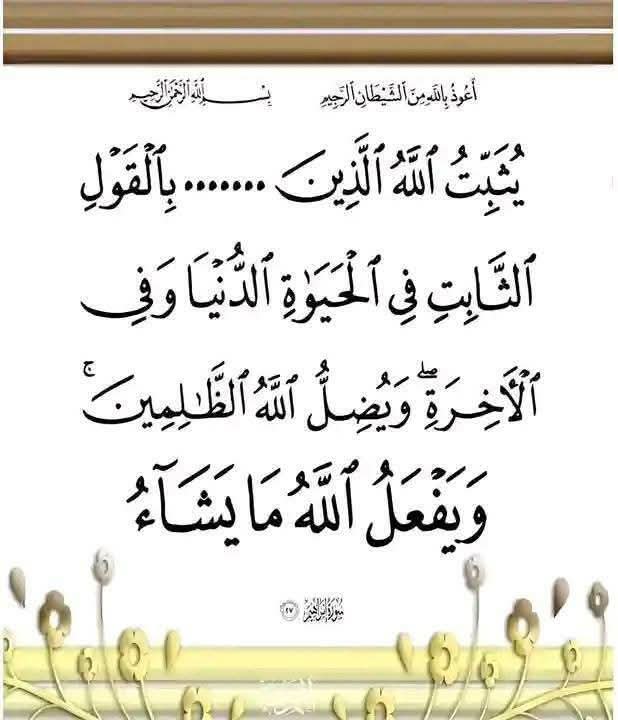 أَعُوذُ بِاللَّهِ مِنَ ٱلشَّيْطَانِ ٱلرَّجِيمِ بِسْمِ ٱللَّهِ ٱلرَّحْمَٰنِ ٱلرَّحِيمِ
يُثَبِّتُ ٱللَّهُ ٱلَّذِينَ ....... بِٱلْقَوْلِ
ٱلثَّابِتِ فِي ٱلْحَيَوٰةِ ٱلدُّنْيَا وَفِي
ٱلْأَخِرَةِۖ وَيُضِلُّ ٱللَّهُ ٱلظَّٰلِمِينَۚ
وَيَفْعَلُ ٱللَّهُ مَا يَشَآءُ
سُورَةُ إِبْرَاهِيمَ ٢٧